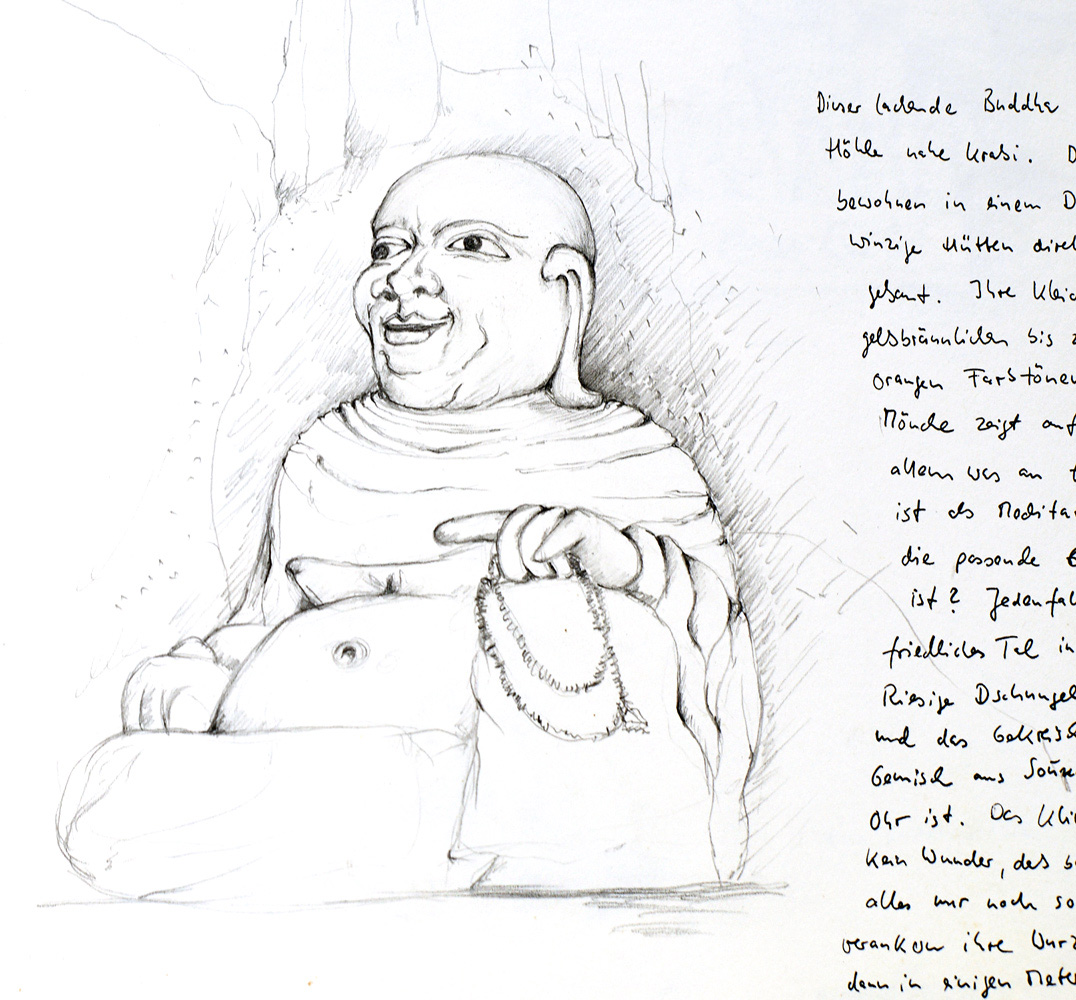 Dieser lachende Buddha
Höhle nahe Krabi. D
bewohnen in einem D
winzige Hütten direk
gebaut. Ihre Kleid
gelbbräunlichen bis z
orangen Farbtönen
Mönche zeigt auf
allem was an
ist als Medita
die passende
ist? Jedenfal
friedliches Tal in
Riesige Dschungel
und das Gekreisch
Gemisch aus
Ohr ist. Das Kli
Kein Wunder, das
alles nur noch so
verankern ihre Wurz
dann in einigen Mete